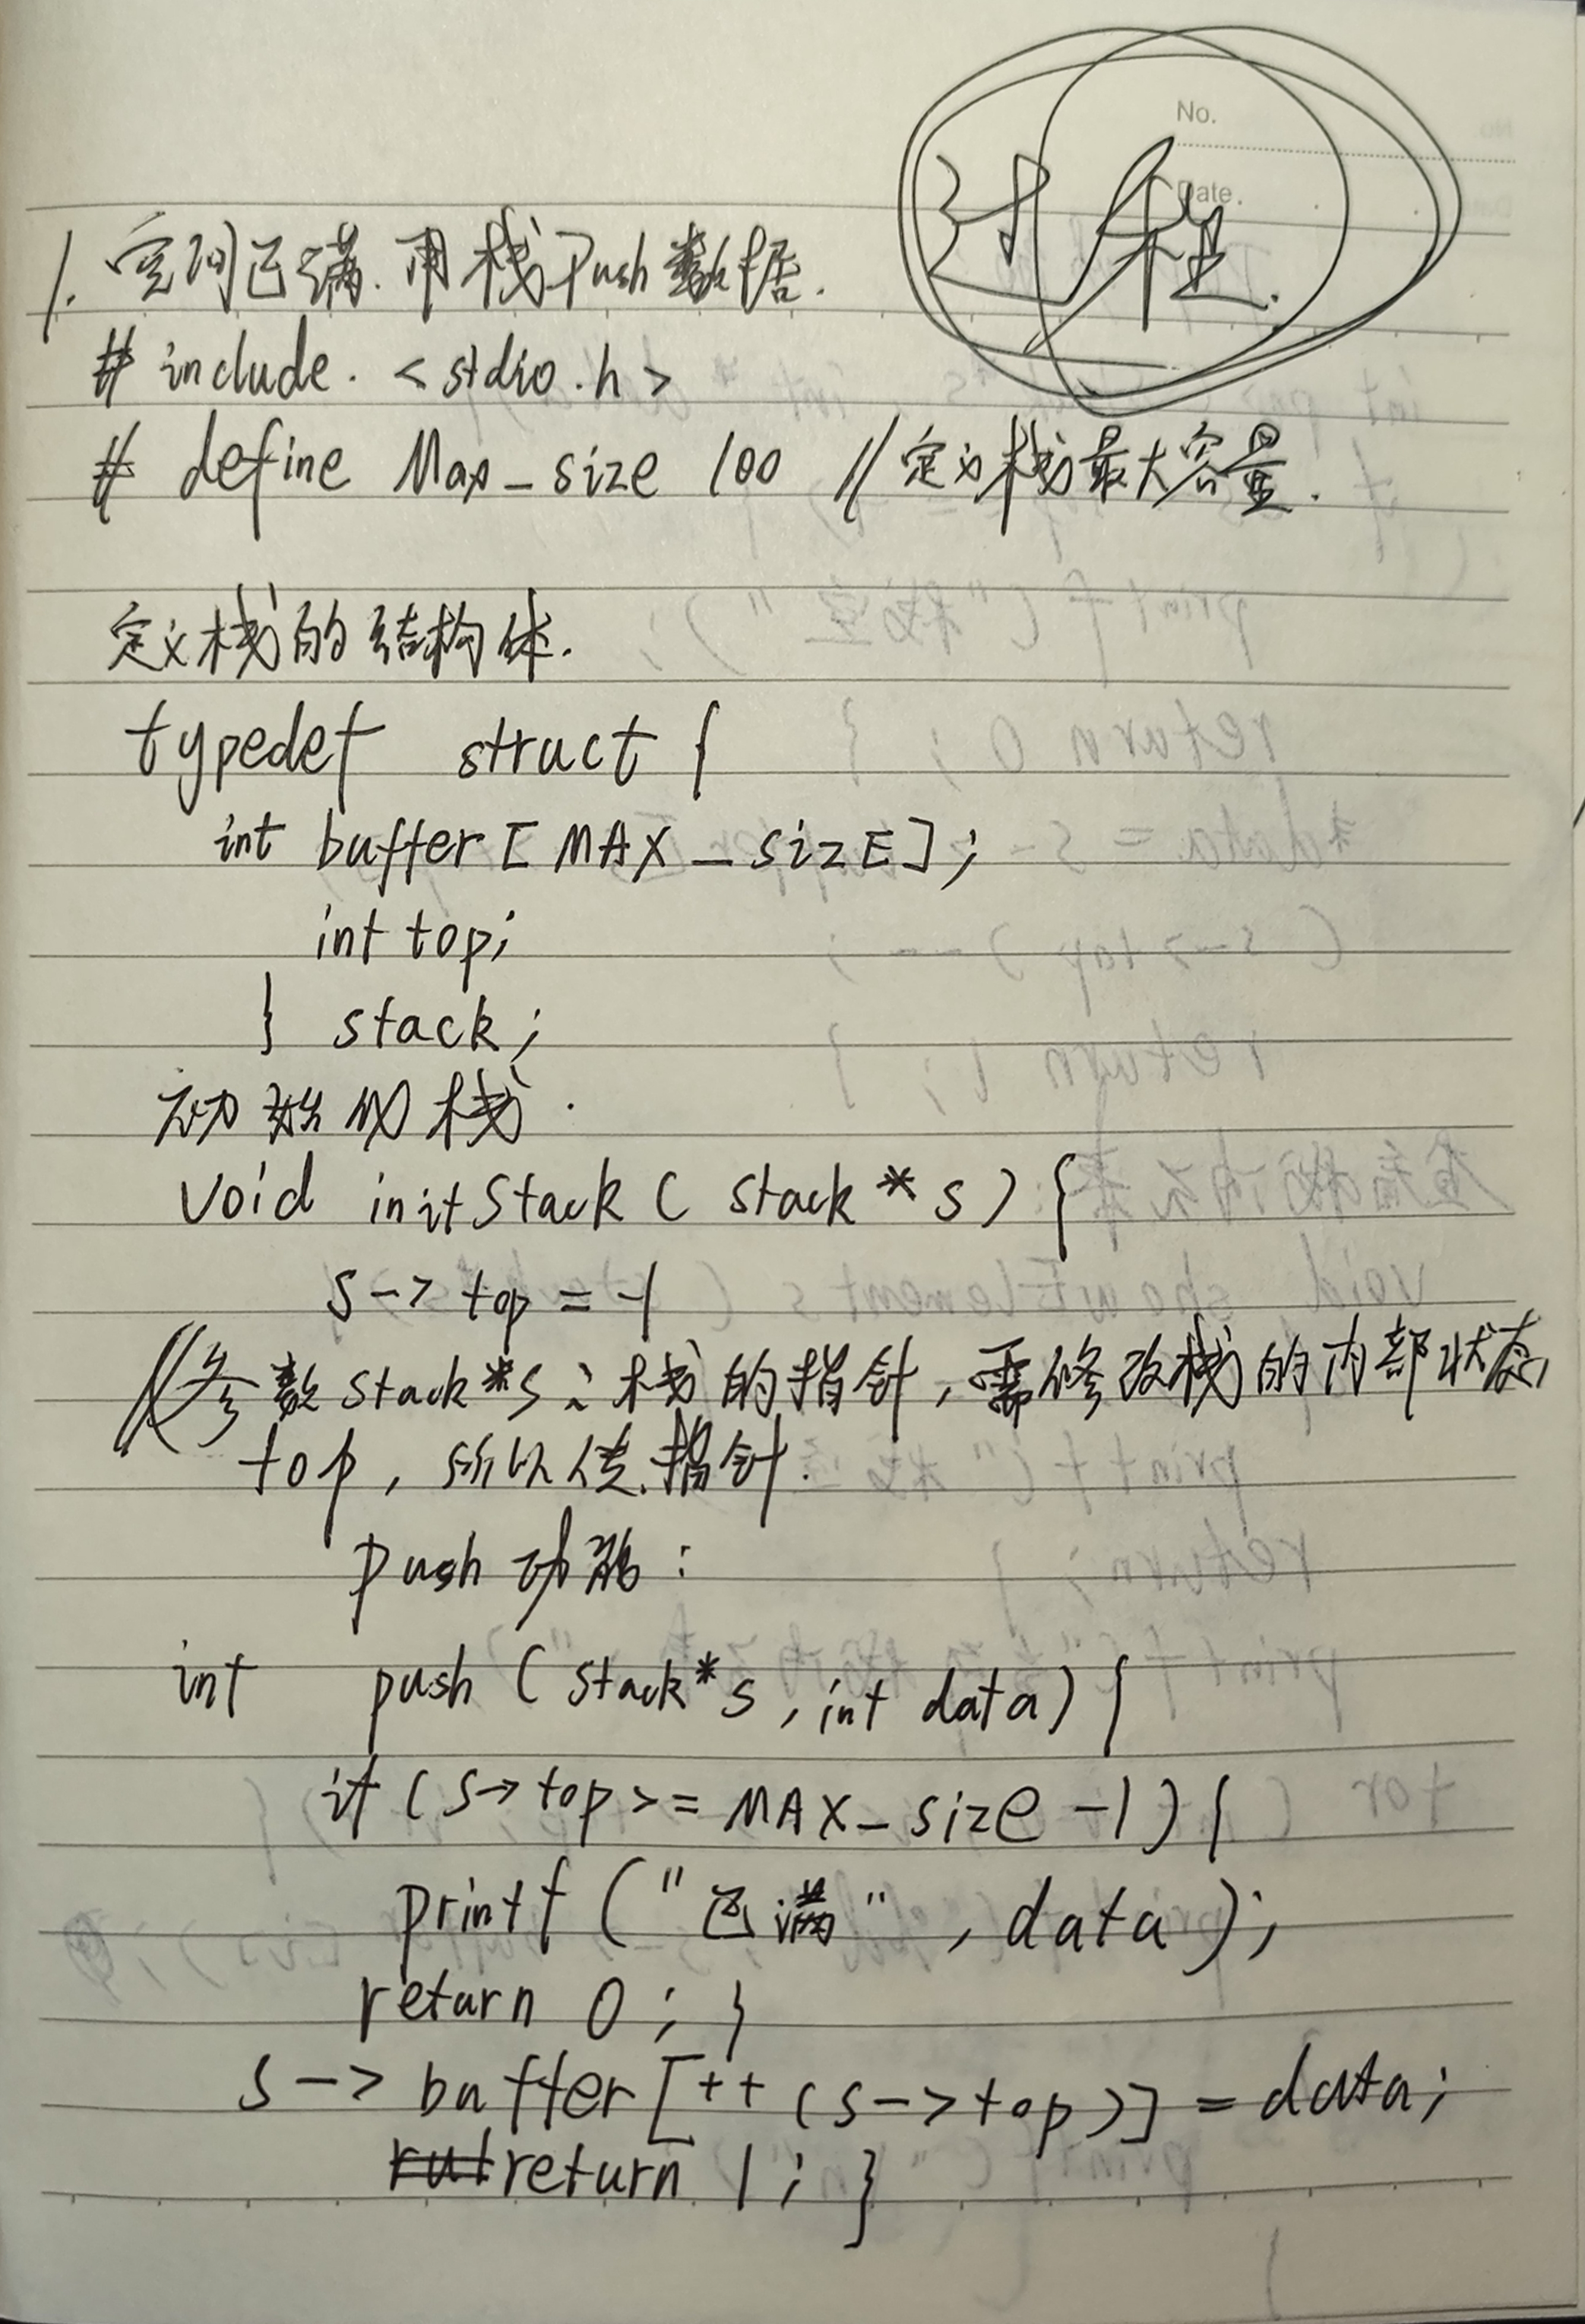 No.
Date.
过程.
1. 空间已满.用栈Push数据.
# include. <stdio.h>
# define Max_size 100 //定义栈最大容量.
定义栈的结构体.
typedef struct {
int buffer[MAX_sizE];
int top;
} stack;
初始化栈.
void initStack( stack *s) {
s-> top = -1
//参数stack*s:栈的指针,需修改栈的内部状态,
top,所以传指针.
push功能:
int push(stack*s,int data) {
if(s->top>=MAX_size-1) {
printf("已满",data);
return 0; }
s-> buffer[++(s->top)]=data;
return 1; }